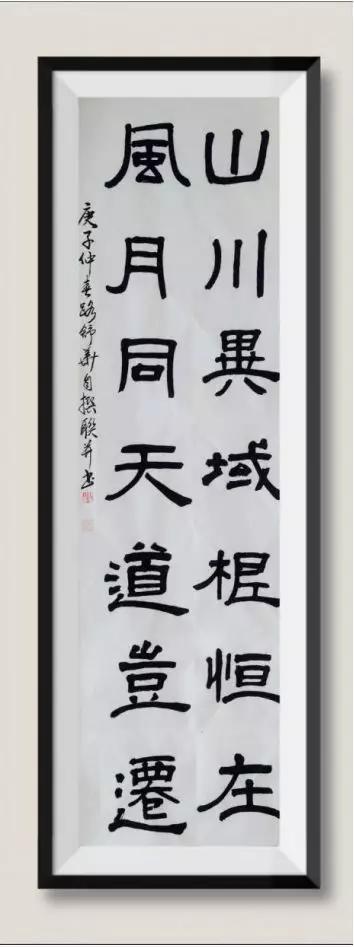 山川異域根恒在
風月同天道豈遷
庚子仲春路師華自撰聯并書